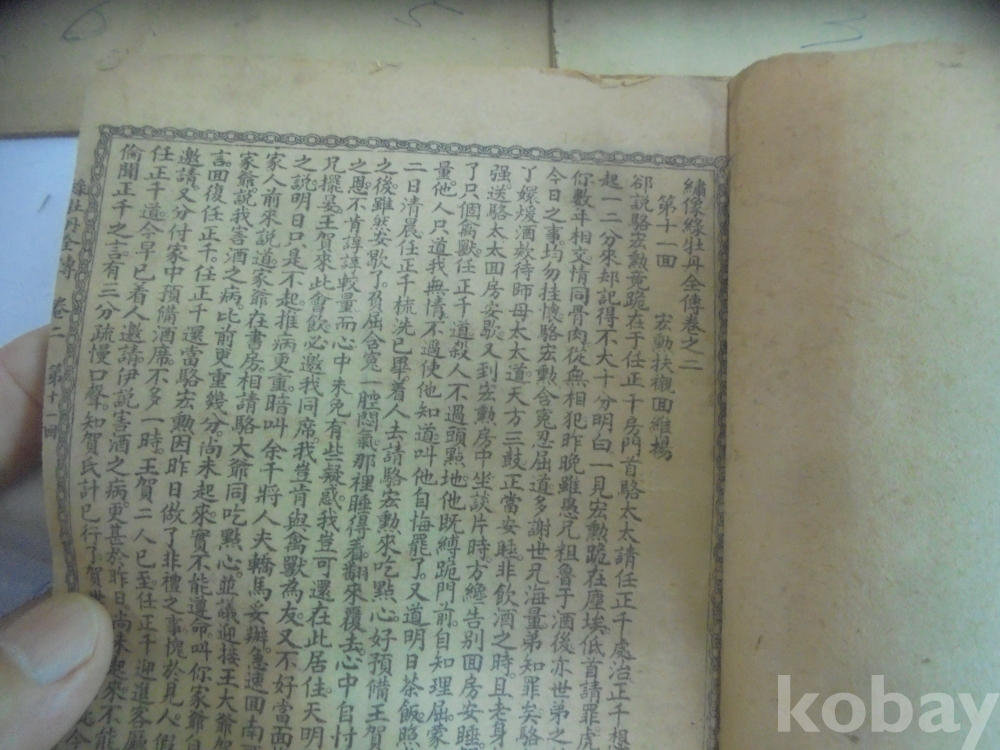 繡像綠牡丹全傳卷之二
第十一回 宏勳扶櫬回維揚
却說駱宏勳竟跪在于任正千房門首駱太太請任正千處治正千想
起一二分來却記得不大十分明白一見宏勳跪在塵埃低首請罪
你數年相交情同骨肉從無相犯昨晚雖愚兄粗魯于酒後亦世弟之
今日之事均勿挂懷駱宏勳含寃忍屈道多謝世兄海量弟知罪矣駱
了嬛煖酒欵待師母太太道天方三鼓正當安睡非飲酒之時且老身
强送駱太太回房安歇又到宏勳房中坐談片時方纔告別回房安睡
了只個禽獸任正千道殺人不過頭點地他既縛跪門前自知理屈蒙
量他人只道我無情不過使他知道叫他自悔罷了又道明日茶飯照
二日清晨任正千梳洗已畢着人去請駱宏勳來吃點心好預備王賀
之後雖然安歇了負屈含寃一腔悶氣那裡睡得着翻來覆去心中自忖
之恩不肯諄諄較量而心中未免有些疑惑我豈可還在此居住天明
兄擺宴王賀來此會飲必邀我同席我豈肯與禽獸為友又不好當面
之說明日只是不起推病更重暗叫余千將人夫轎馬妥辦急速回南
家人前來說道家爺在書房相請駱大爺同吃點心並議迎接王大爺賀
家爺說我害酒之病比前更重幾分尚未起來實不能遵命叫你家爺自
言回復任正千任正千還當駱宏勳因昨日做了非禮之事愧於見人假
邀請又分付家中預備酒席不多一時王賀二人已至任正千迎進客廳
任正千道今早已着人邀請伊說害酒之病更甚於昨日尚未起來不能
倫聞正千之言有三分疏慢口聲知賀氏計已行了賀世
綠牡丹全傳 卷二 第十一回
kobay